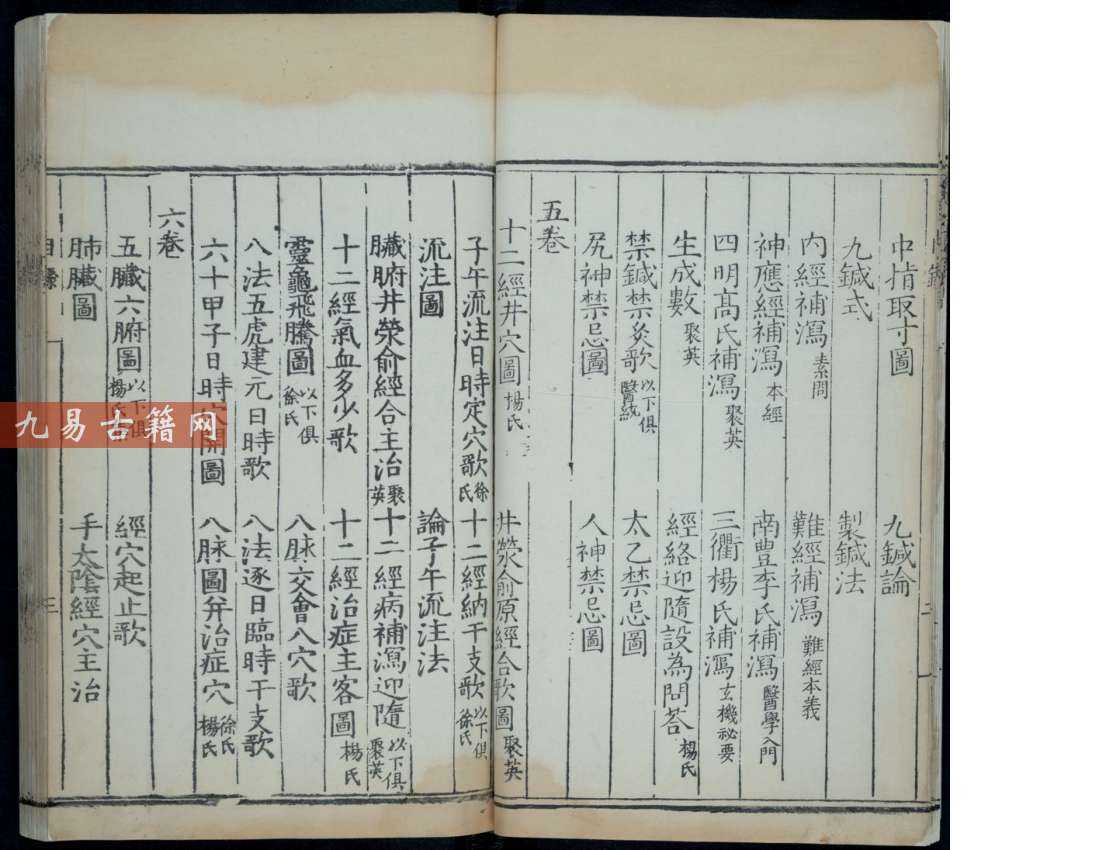 中指取寸圖 九鍼論
九鍼式 製鍼法
內經補瀉 素問 難經補瀉 難經本義
神應經補瀉 本經 南豊李氏補瀉 醫學入門
四明高氏補瀉 聚英 三衢楊氏補瀉 玄機祕要
生成數 聚英 經絡迎隨設為問荅 楊氏
禁鍼禁灸歌 以下俱醫統 太乙禁忌圖
尻神禁忌圖 人神禁忌圖
五卷
十二經井穴圖 楊氏 井滎俞原經合歌圖 聚英
子午流注日時定穴歌 徐氏 十二經納干支歌 以下俱徐氏
流注圖 論子午流注法
臟腑井滎俞經合主治 聚英 十二經病補瀉迎隨 以下俱聚英
十二經氣血多少歌 十二經治症主客圖 楊氏
靈龜飛騰圖 以下俱徐氏 八脉交會八穴歌
八法五虎建元日時歌 八法逐日臨時干支歌
六十甲子日時穴開圖 八脉圖并治症穴 徐氏楊氏
六卷
五臟六腑圖 以下俱楊 經穴起止歌
肺臟圖 手太陰經穴主治
目錄
三
九易古籍网